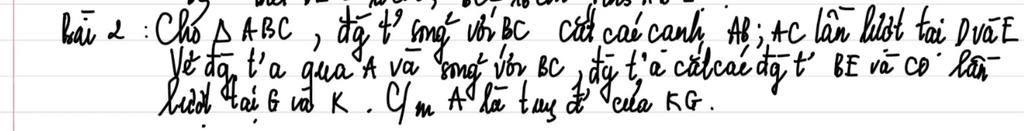 Bài 2 : Cho Δ ABC , đg t² song² với BC cắt các cạnh AB ; AC lần lượt tại D và E
Vẽ đg t² a qua A và song² với BC , đg t² a cắt các đg t² BE và CD lần
lượt tại G và K . C/m A là trung đ² của KG .